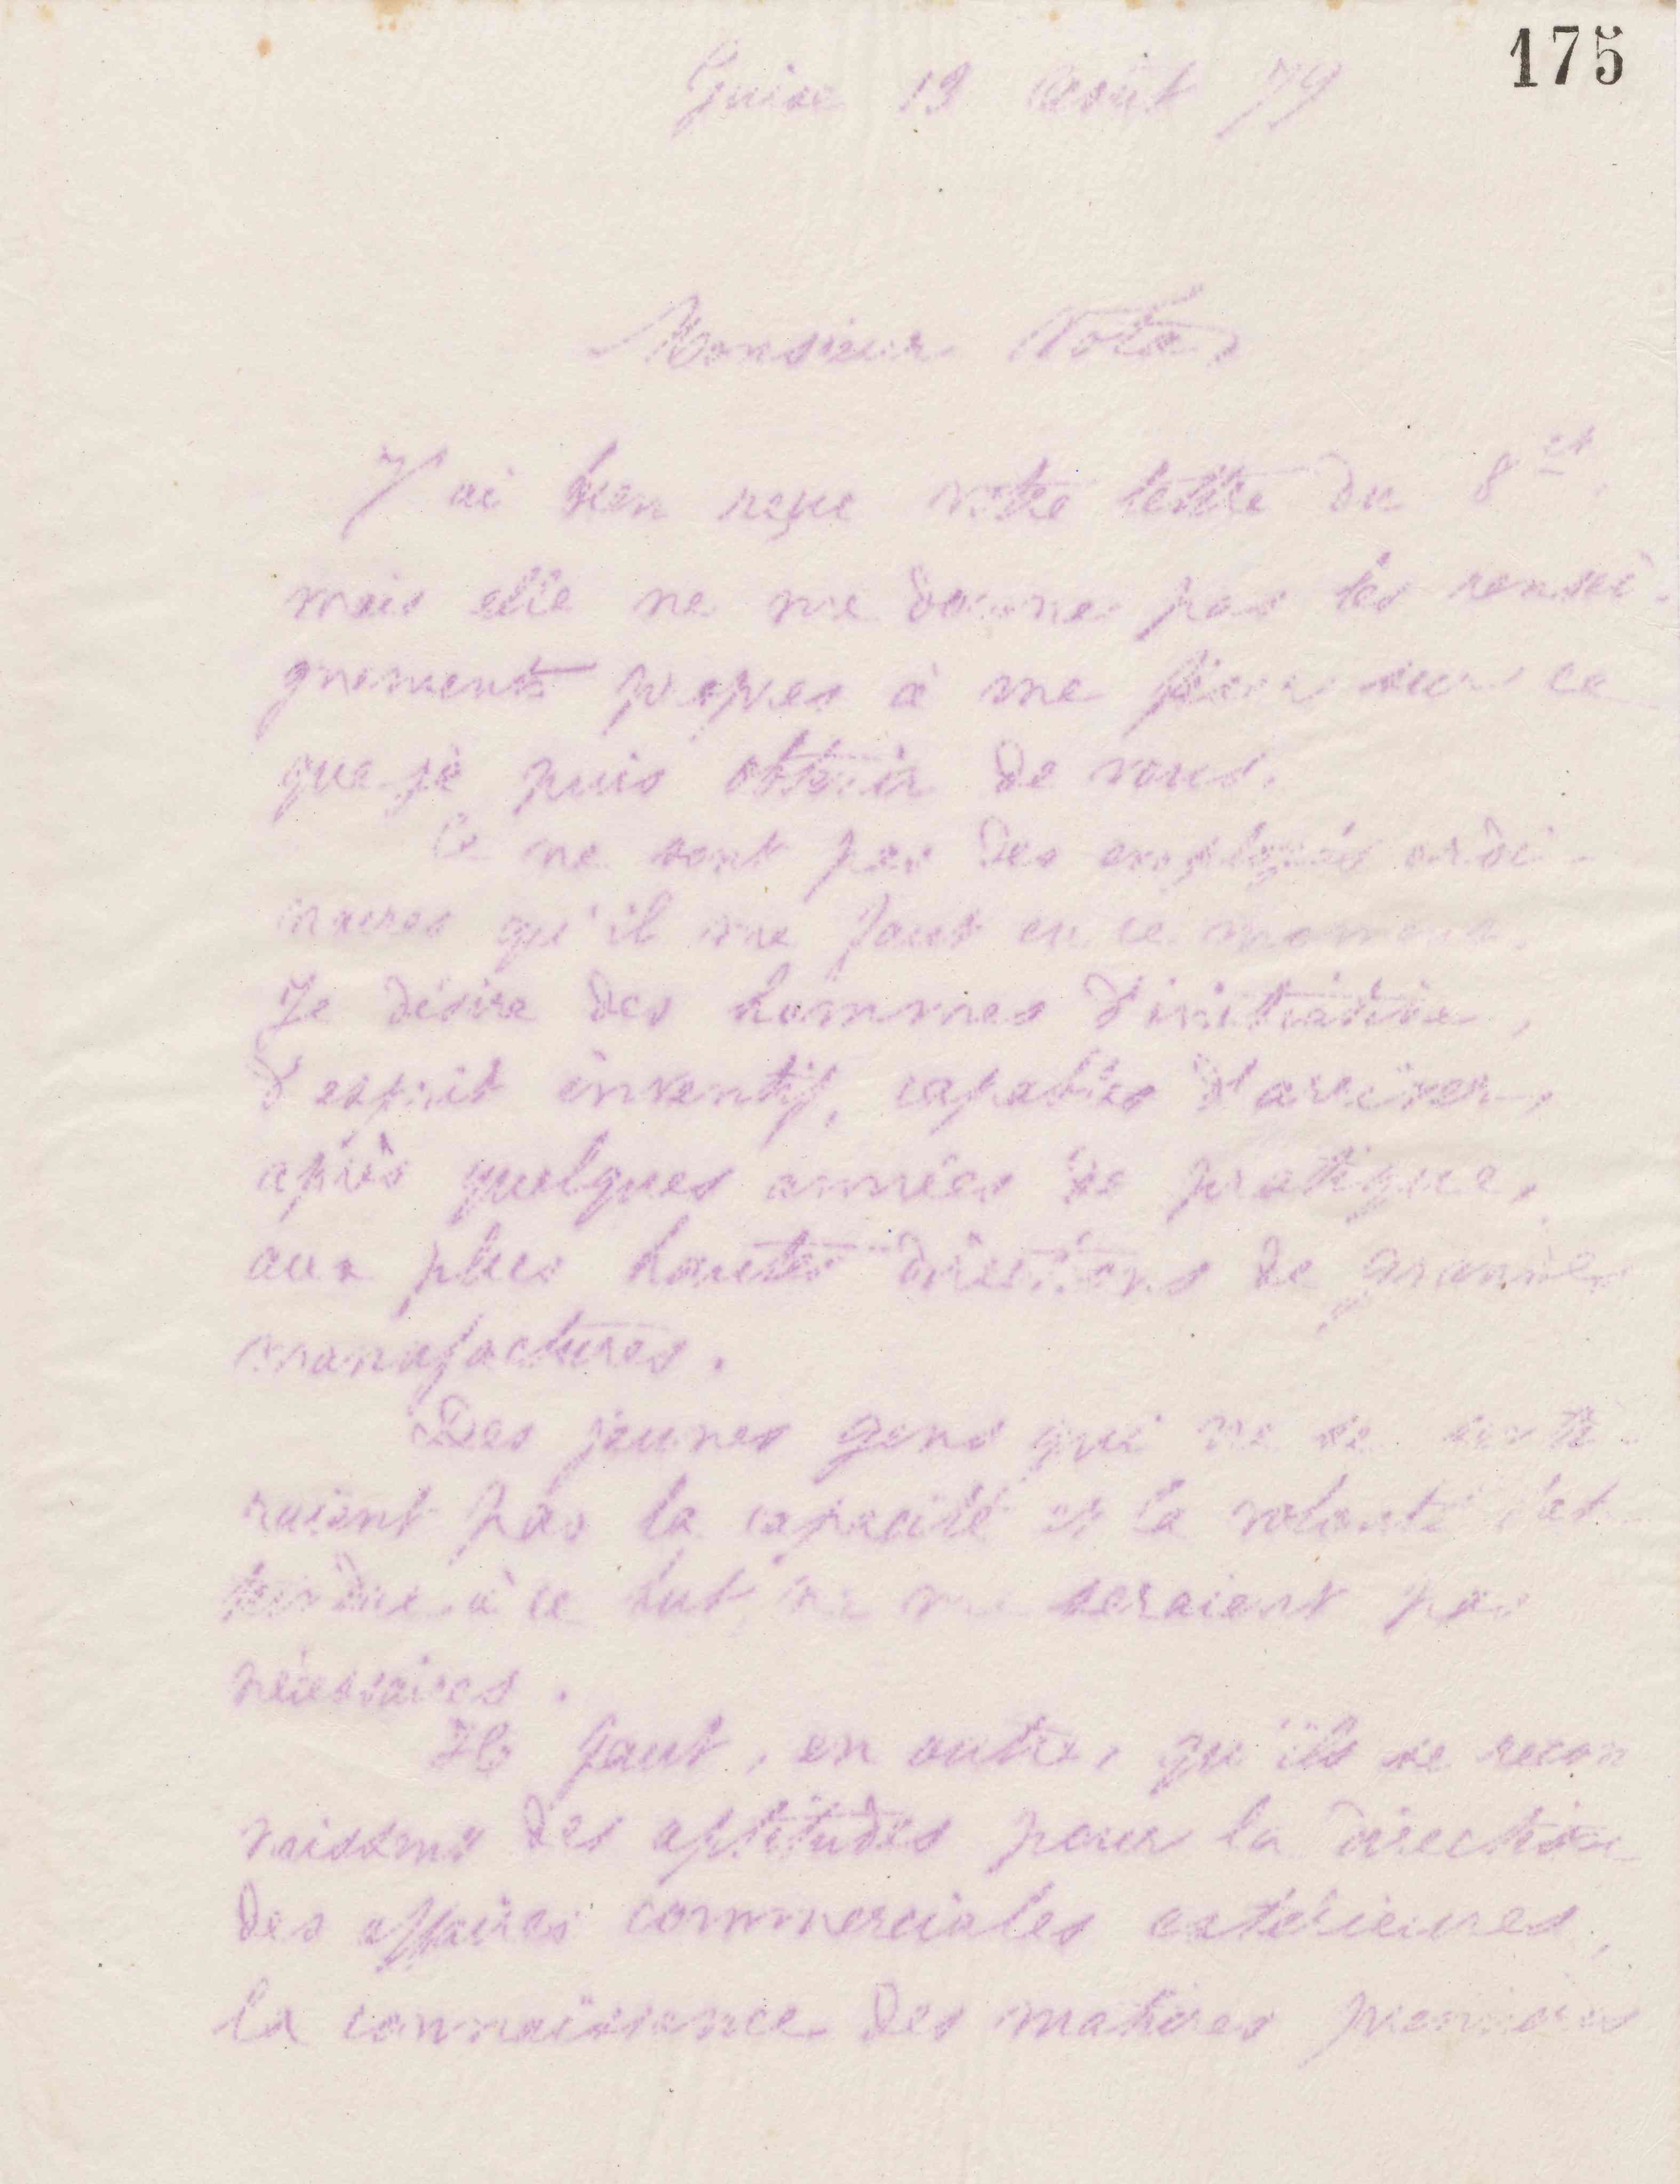 175
Guise 19 août 79
Monsieur Nota,
J'ai bien reçue votre lettre du 8 ct,
mais elle ne me donne pas les rensei-
gnements propres à me fixer sur ce
que je puis obtenir de vous.
Ce ne sont pas des employés ordi-
naires qu'il me faut en ce moment.
Je désire des hommes d'initiative,
d'esprit inventif, capables d'arriver,
après quelques années de pratique,
aux plus hautes directions de grandes
manufactures.
Des jeunes gens qui ne se senti-
raient pas la capacité et la volonté d'at-
teindre à ce but ne me seraient pas
nécessaires.
Il faut, en outre, qu'ils se recon
naissent des aptitudes pour la direction
des affaires commerciales extérieures,
la connaissance des matières premières